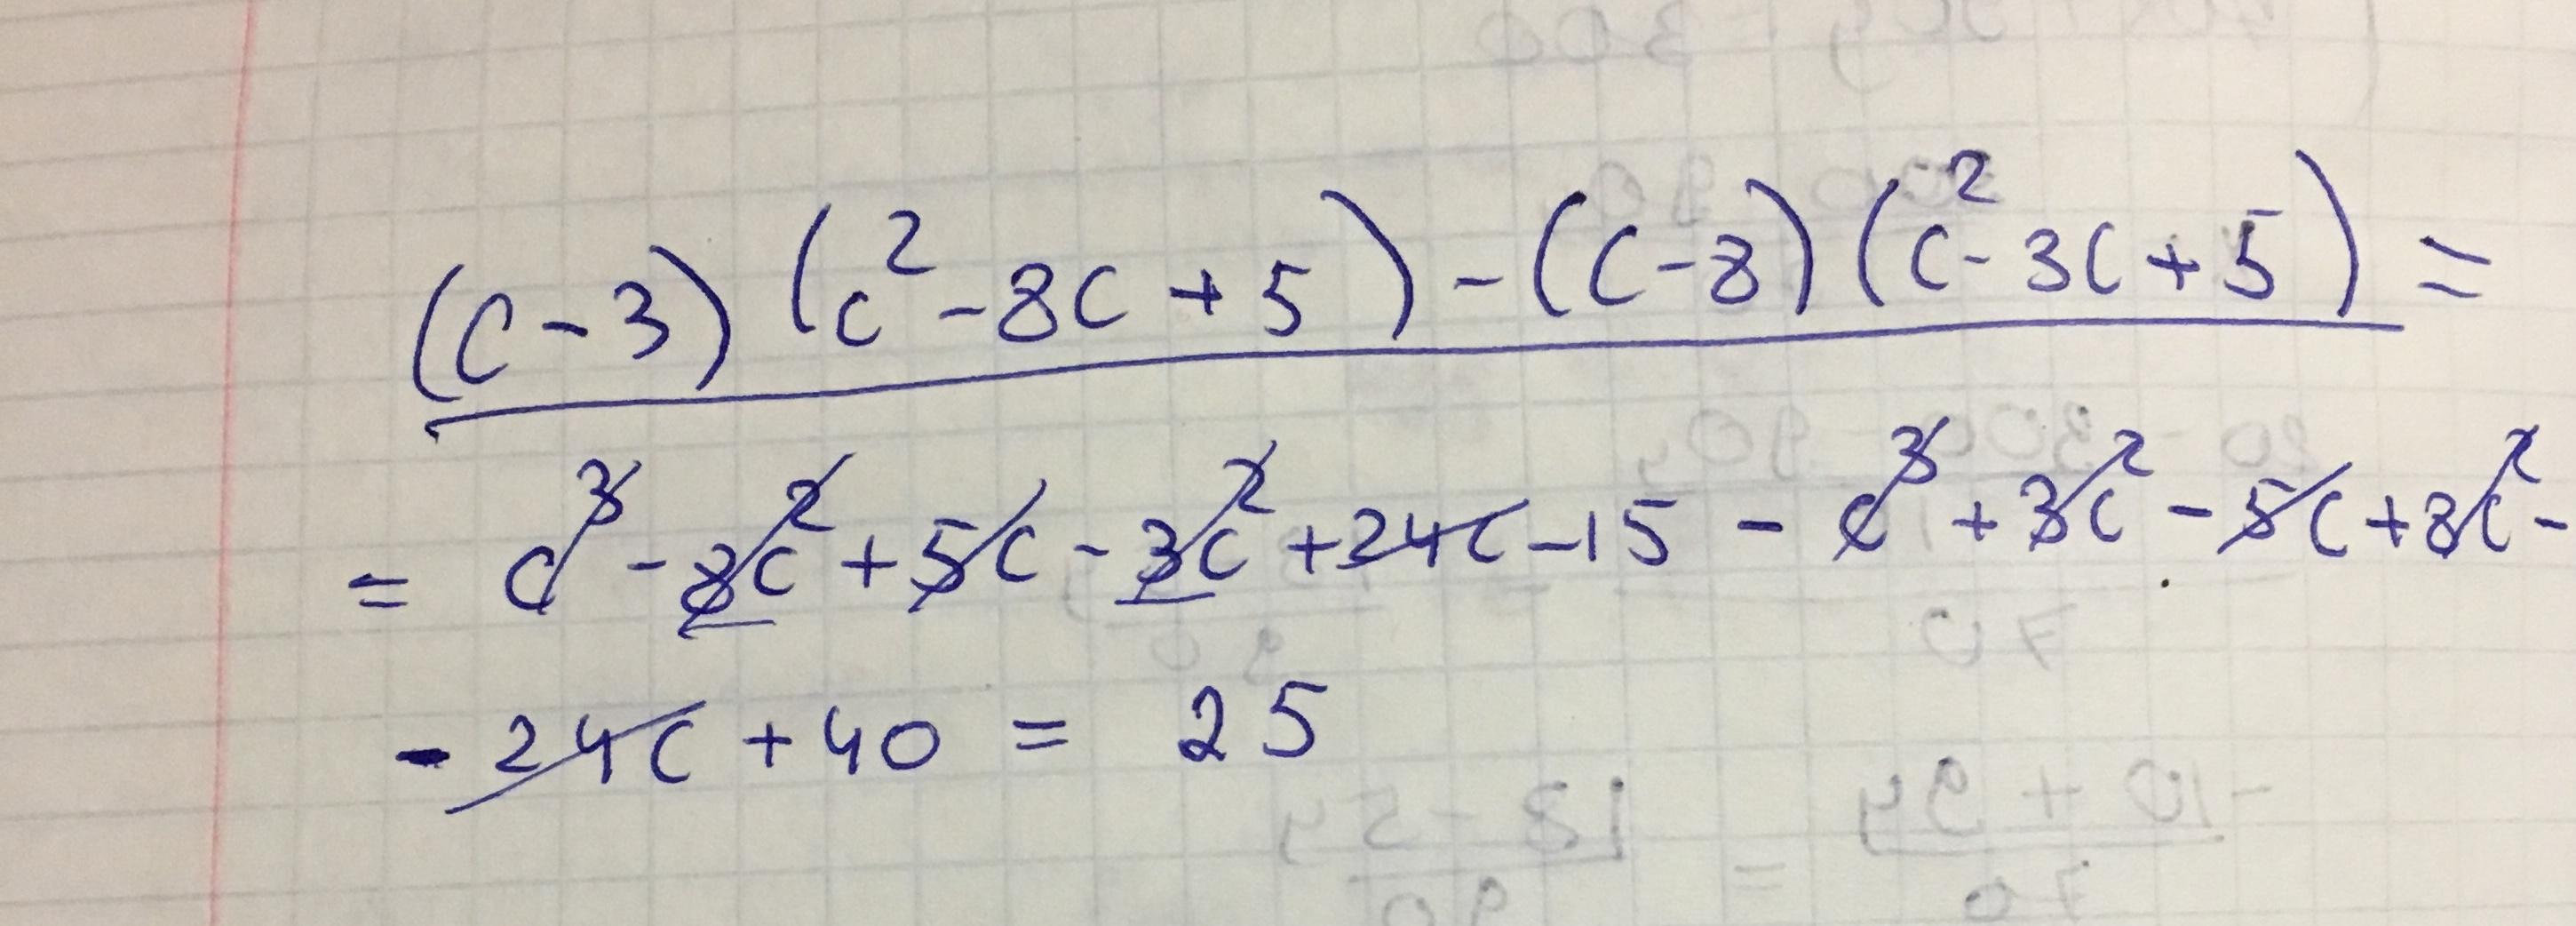 (c-3)(c²-8c+5)-(c-8)(c²-3c+5)=
= c³-8c²+5c-3c²+24c-15-c³+3c²-5c+8c²-
-24c+40 = 25